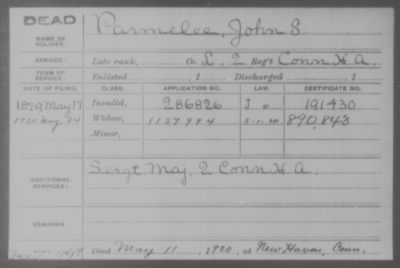 DEAD
NAME OF SOLDIER: Parmelee, John S.
SERVICE: Late rank, Co. L, 2 Reg't Conn H A.
TERM OF SERVICE: Enlisted , 1 Discharged , 1
DATE OF FILING. CLASS. APPLICATION NO. LAW. CERTIFICATE NO.
1879 May 17 Invalid, 286826 191430
1920 Widow, 890,843
Minor,
ADDITIONAL SERVICES: Sergt. Maj. 2 Conn H A.
REMARKS:
Died May 11, 1920, at New Haven, Conn.